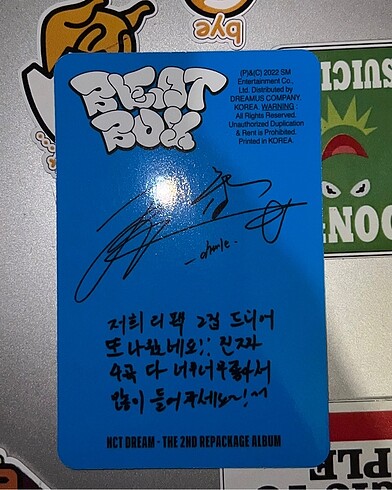 bye
BEAT
BOX
(P)&(C) 2022 SM
Entertainment Co.,
Ltd. Distributed by
DREAMUS COMPANY.
KOREA. WARNING :
All Rights Reserved.
Unauthorized Duplication
& Rent is Prohibited.
Printed in KOREA.
저희 리팩 2집 드디어
또 나왔네요!! 진짜
수록 다 너무너무 좋아서
많이 들어주세요~!
NCT DREAM - THE 2ND REPACKAGE ALBUM